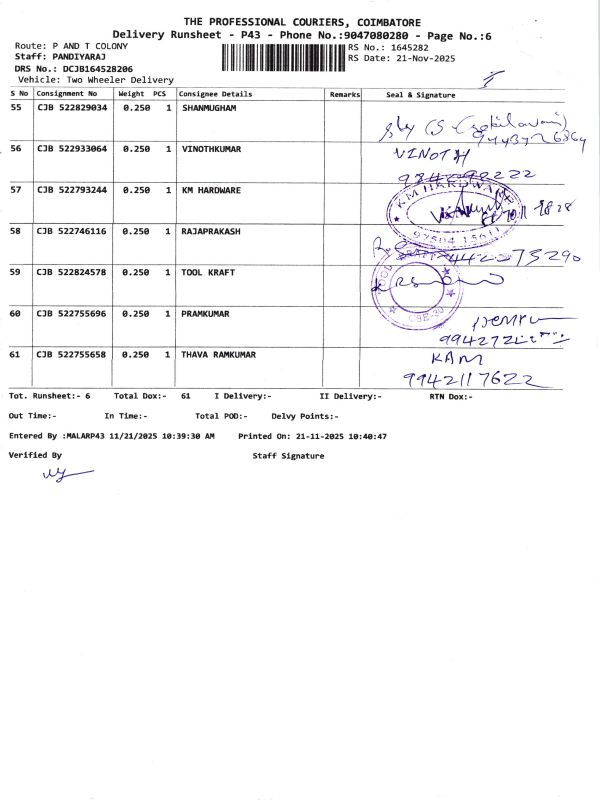 THE PROFESSIONAL COURIERS, COIMBATORE
Delivery Runsheet - P43 - Phone No.:9047080280 - Page No.:6
Route: P AND T COLONY
RS No.: 1645282
Staff: PANDIYARAJ
RS Date: 21-Nov-2025
DRS No.: DCJB164528206
Vehicle: Two Wheeler Delivery
S No Consignment No Weight PCS Consignee Details Remarks Seal & Signature
55 CJB 522829034 0.250 1 SHANMUGHAM
56 CJB 522933064 0.250 1 VINOTHKUMAR VINOTH
57 CJB 522793244 0.250 1 KM HARDWARE KM HARDWARE
58 CJB 522746116 0.250 1 RAJAPRAKASH
59 CJB 522824578 0.250 1 TOOL KRAFT
60 CJB 522755696 0.250 1 PRAMKUMAR
61 CJB 522755658 0.250 1 THAVA RAMKUMAR RAM
9942117622
Tot. Runsheet:- 6 Total Dox:- 61 I Delivery:- II Delivery:- RTN Dox:-
Out Time:- In Time:- Total POD:- Delvy Points:-
Entered By :MALARP43 11/21/2025 10:39:30 AM Printed On: 21-11-2025 10:40:47
Verified By Staff Signature